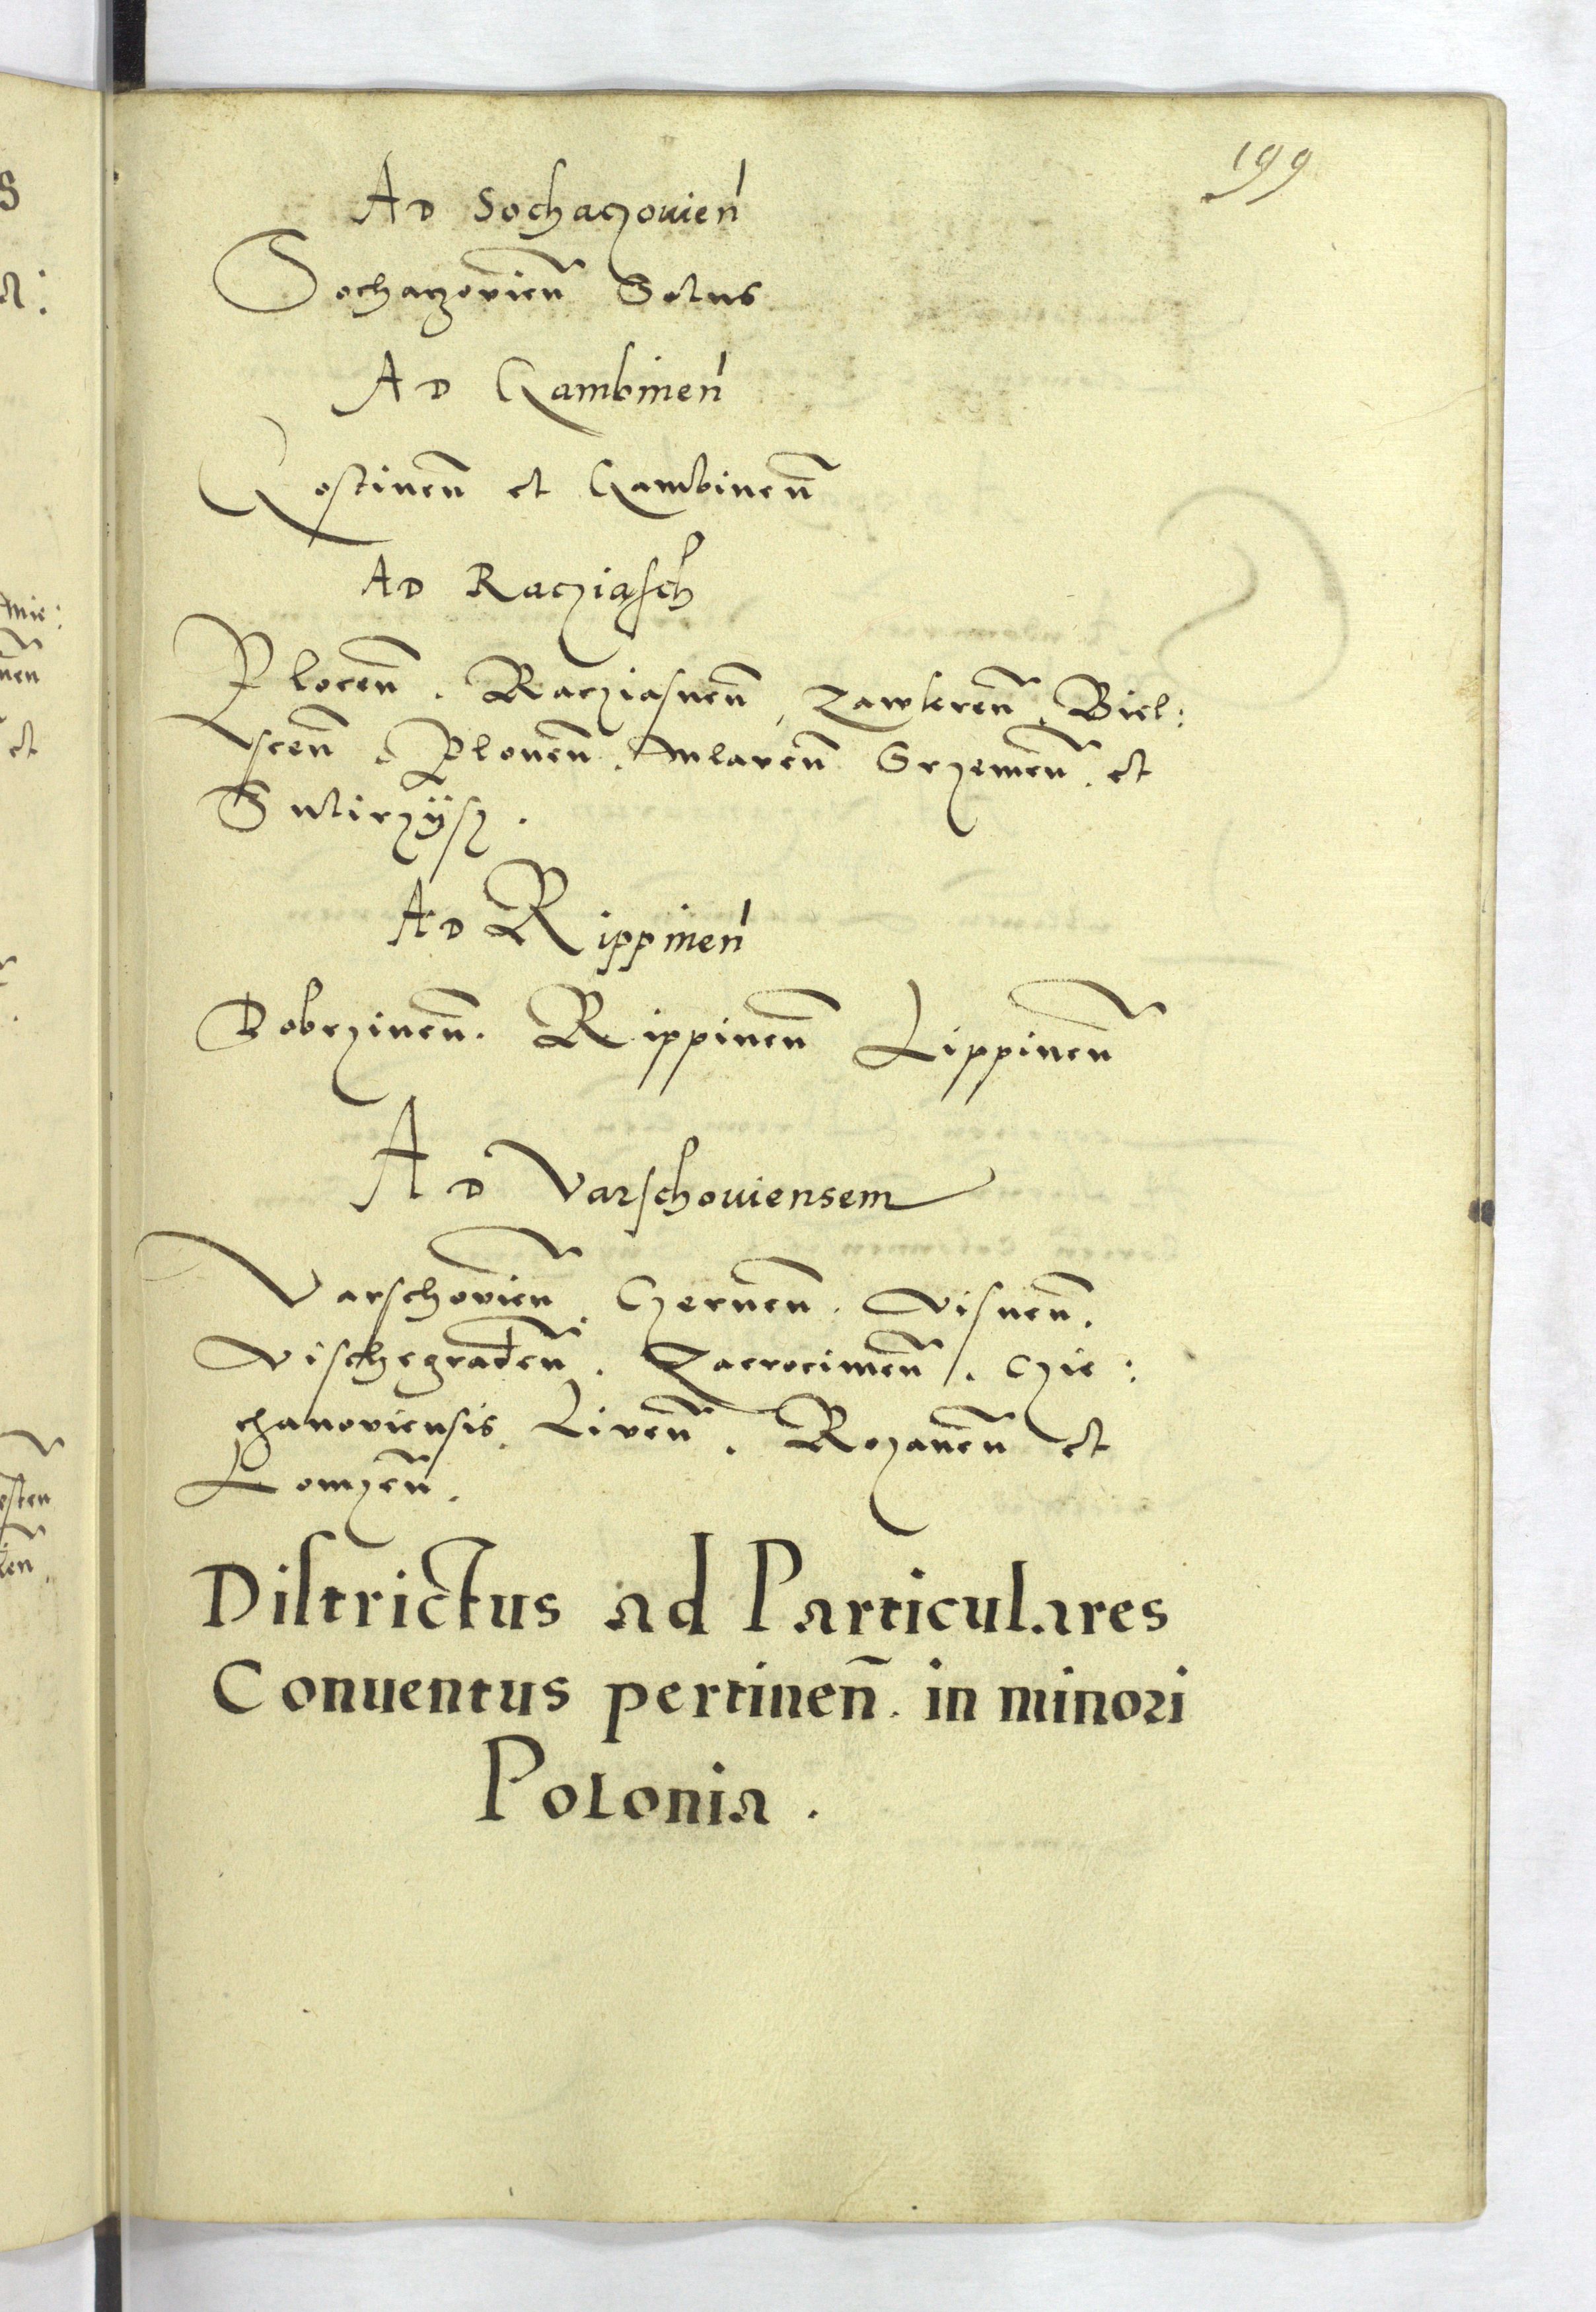 199
AD Sochaczouien̄
Sochaczovien̄ Solus
AD Gambinen̄
Gostinen̄ et Gambinen̄
AD Racziasch
Plocen̄. Racziasnen̄, Zawkren̄. Biel:
scen̄. Plonen̄. Mlaven̄ Srzemen̄. et
AD Rippinen̄
Dobrzinen̄. Rippinen̄ Lippinen̄
AD Varschouiensem
Varschovien̄. Czernen̄. Visnen̄.
Vischegraden̄. Zacrocimen̄. Czie:
chanoviensis. Liven̄. Rozanen̄ et
Lomzen̄.
Districtus ad Particulares
Conuentus pertinen̄. in minori
Polonia.